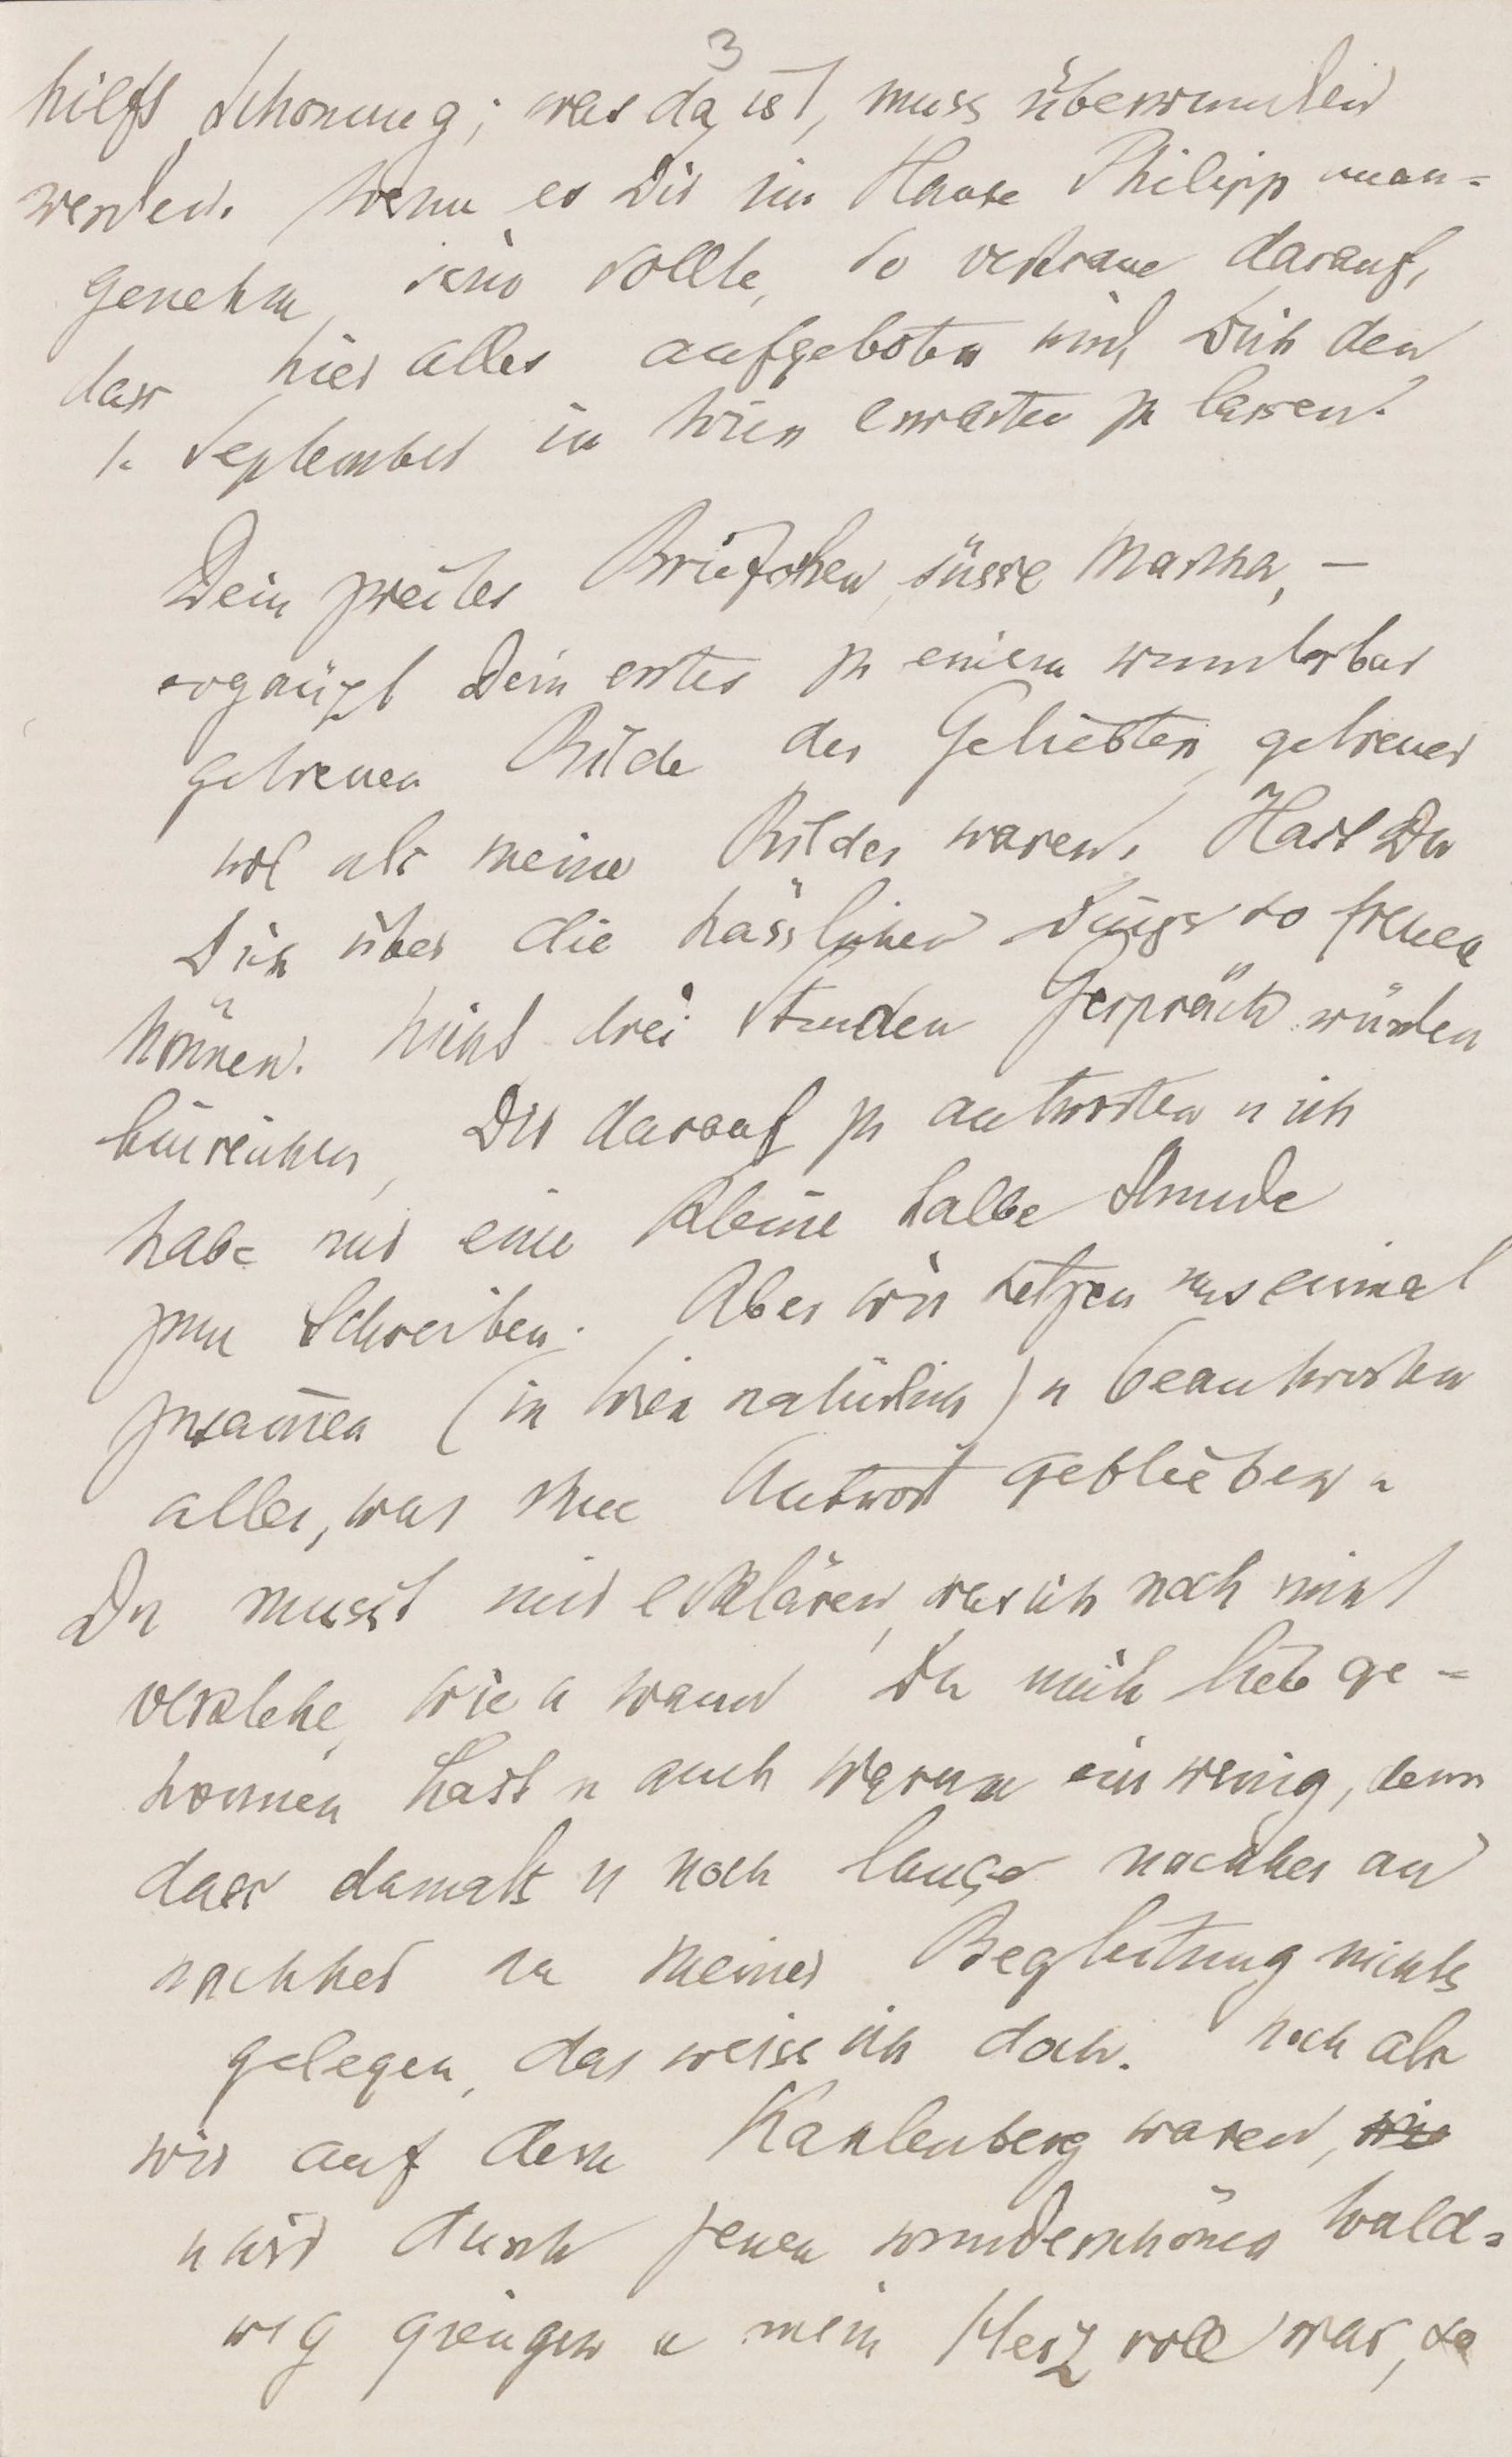 3
hilft Schonung; was da ist, muss überwunden
werden. Wenn es Dir im Hause Philipp unan-
genehm sein sollte, so vertraue darauf,
dass hier alles aufgeboten wird, Dich den
1. September in Wien erwarten zu lassen.
Dein zweites Briefchen, süsse Martha, —
ergänzt Dein erstes zu einem wunderbar
getreuen Bilde der Geliebten, getreuer
wol als meine Bilder waren. Hast Du
Dich über die hässlichen Dinger so freuen
können. Nicht drei Stunden Gespräch würden
hinreichen, Dir darauf zu antworten u ich
habe nur eine kleine halbe Stunde
zum Schreiben. Aber wir setzen uns einmal
zusam̄en (in Wien natürlich) u beantworten
alles, was ohne Antwort geblieben.
Du musst mir erklären, was ich noch nicht
verstehe, wie u wann Du mich lieb ge-
wonnen hast u auch warum ein wenig, denn
dass damals u noch lange nachher an
nachher an meiner Begleitung nichts
gelegen, das weiss ich doch. Noch als
wir auf dem Kahlenberg waren, wie
u wir durch jenen wunderschönen Wald-
weg giengen u mein Herz voll war, da